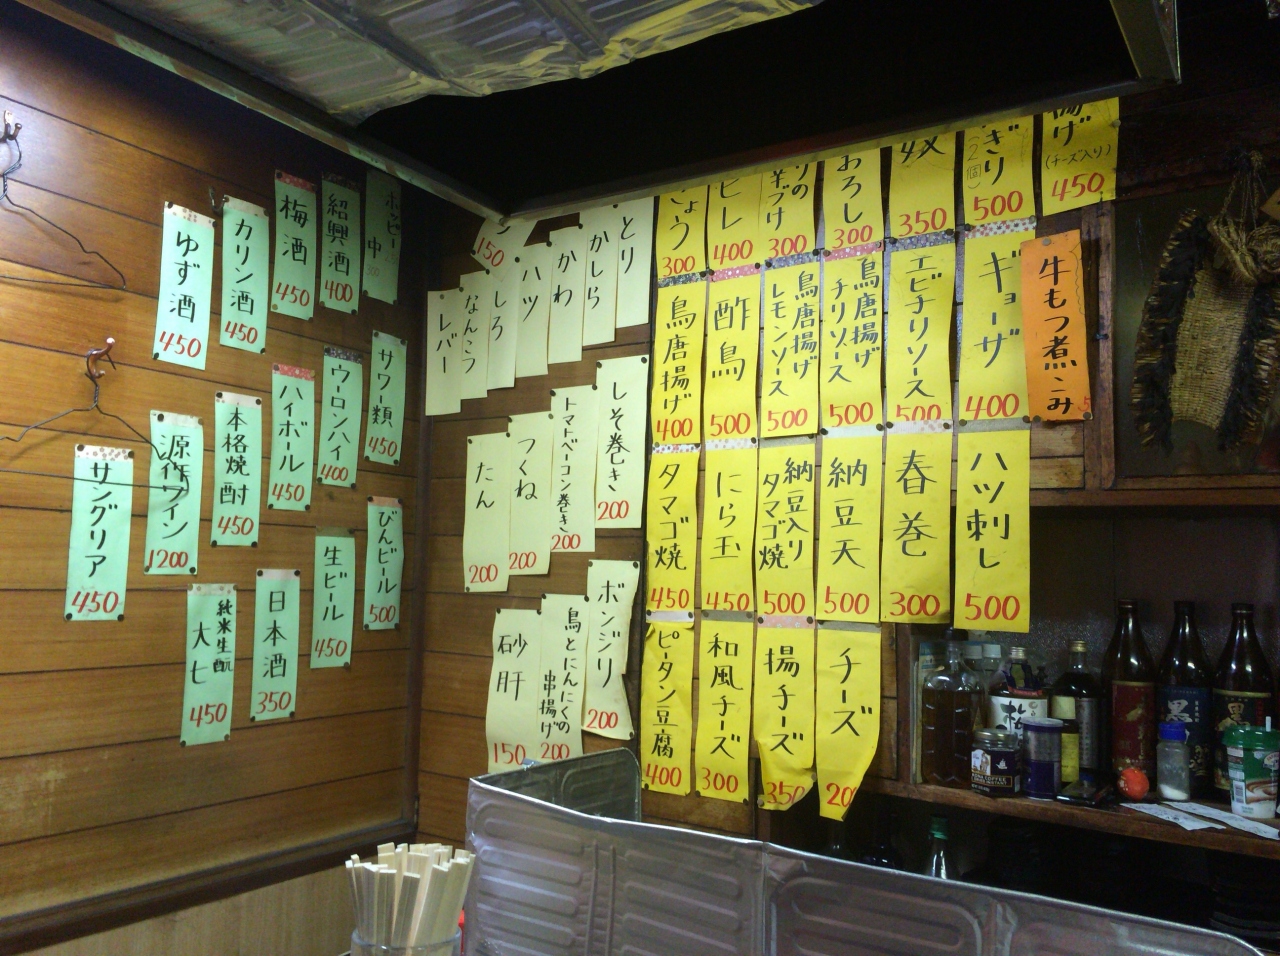 ゆず酒
450
カリン酒
450
梅酒
450
紹興酒
400
ホッピー
中
サングリア
450
原作ワイン
1200
本格焼酎
450
ハイボール
450
ウーロンハイ
400
サワー類
450
純米生酛
大七
450
日本酒
350
生ビール
450
びんビール
500
ン
150
レバー
なんこつ
しろ
ハツ
かわ
かしら
とり
たん
200
つくね
200
トマトベーコン巻き
200
しそ巻き
200
砂肝
150
鳥とにんにくの
串揚げ
200
ボンジリ
200
きょう
300
ヒレ
400
りの
芋づけ
300
おろし
300
奴
350
ぎり
(2個)
500
揚げ
(チーズ入り)
450
鳥唐揚げ
400
酢鳥
500
鳥唐揚げ
レモンソース
500
鳥唐揚げ
チリソース
500
エビチリソース
500
ギョーザ
400
牛もつ煮こみ
5
タマゴ焼
450
にら玉
450
納豆入り
タマゴ焼
500
納豆天
500
春巻
300
ハツ刺し
500
ピータン豆腐
400
和風チーズ
300
揚チーズ
350
チーズ
200
黒